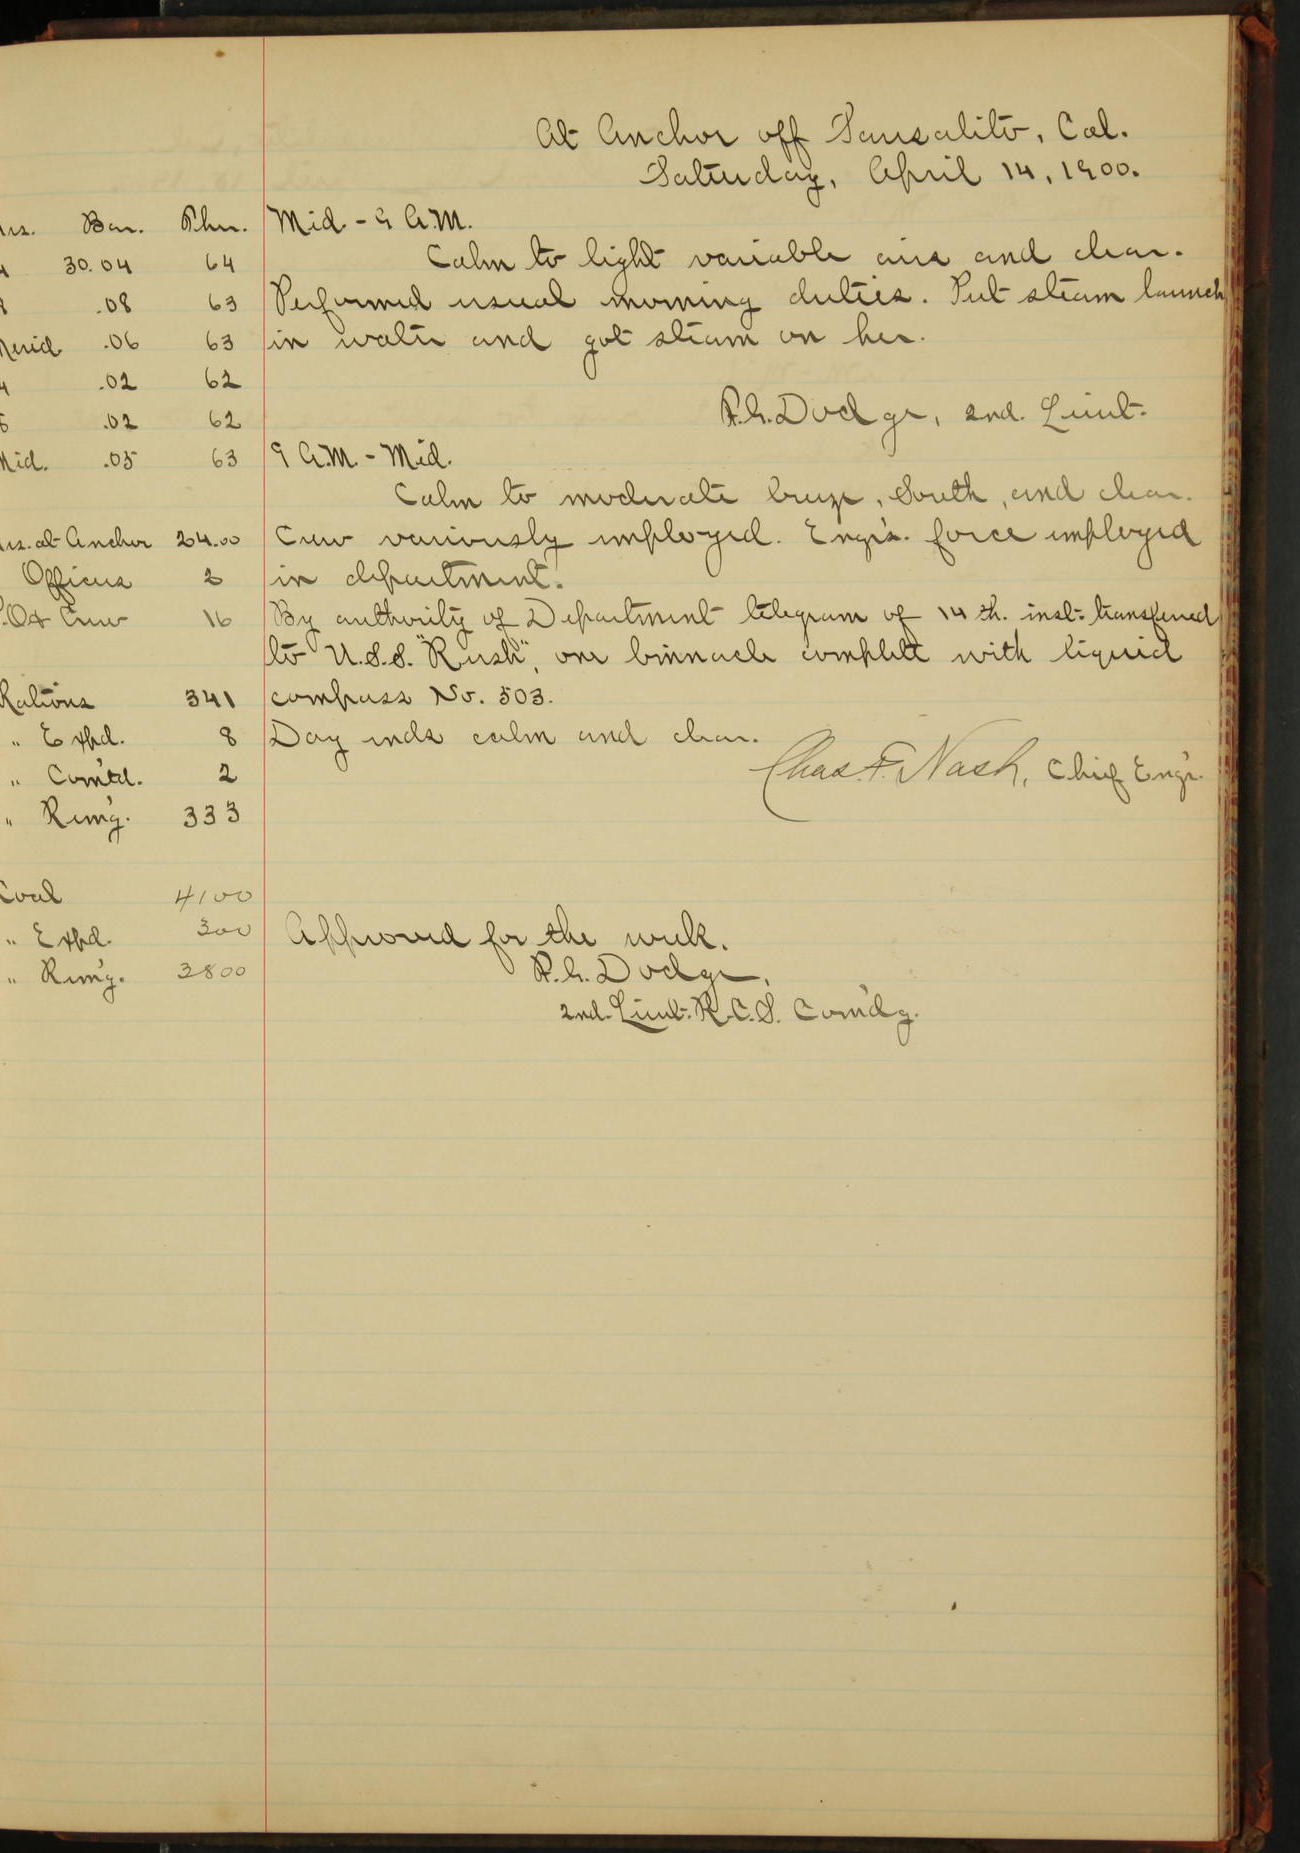 At Anchor off Sausalito, Cal.
Saturday, April 14, 1900.
Hrs. Bar. Ther. Mid. - 9 A.M.
4 30.04 64 Calm to light variable airs and clear.
8 .08 63 Performed usual morning duties. Put steam launch
Merid .06 63 in water and got steam on her.
4 .02 62
8 .02 62 F.G. Dodge, 2nd. Lieut.
Mid. .05 63 9 A.M. - Mid.
Calm to moderate breeze, South, and clear.
Hrs. at Anchor 24.00 Crew variously employed. Engr's. force employed
Officers 2 in department.
P.O & Crew 16 By authority of Department telegram of 14 th. inst. transferred
to U.S.S. "Rush", one binnacle complete with liquid
Rations 341 compass No. 503.
" Expd. 8 Day ends calm and clear.
" Com'td. 2 Chas. F. Nash, Chief Eng'r.
" Rem'g. 333
Coal 4100
" Expd. 300 Approved for the week.
" Rem'g. 3800 F.G. Dodge,
2nd. Lieut. R.C.S. Com'd'g.